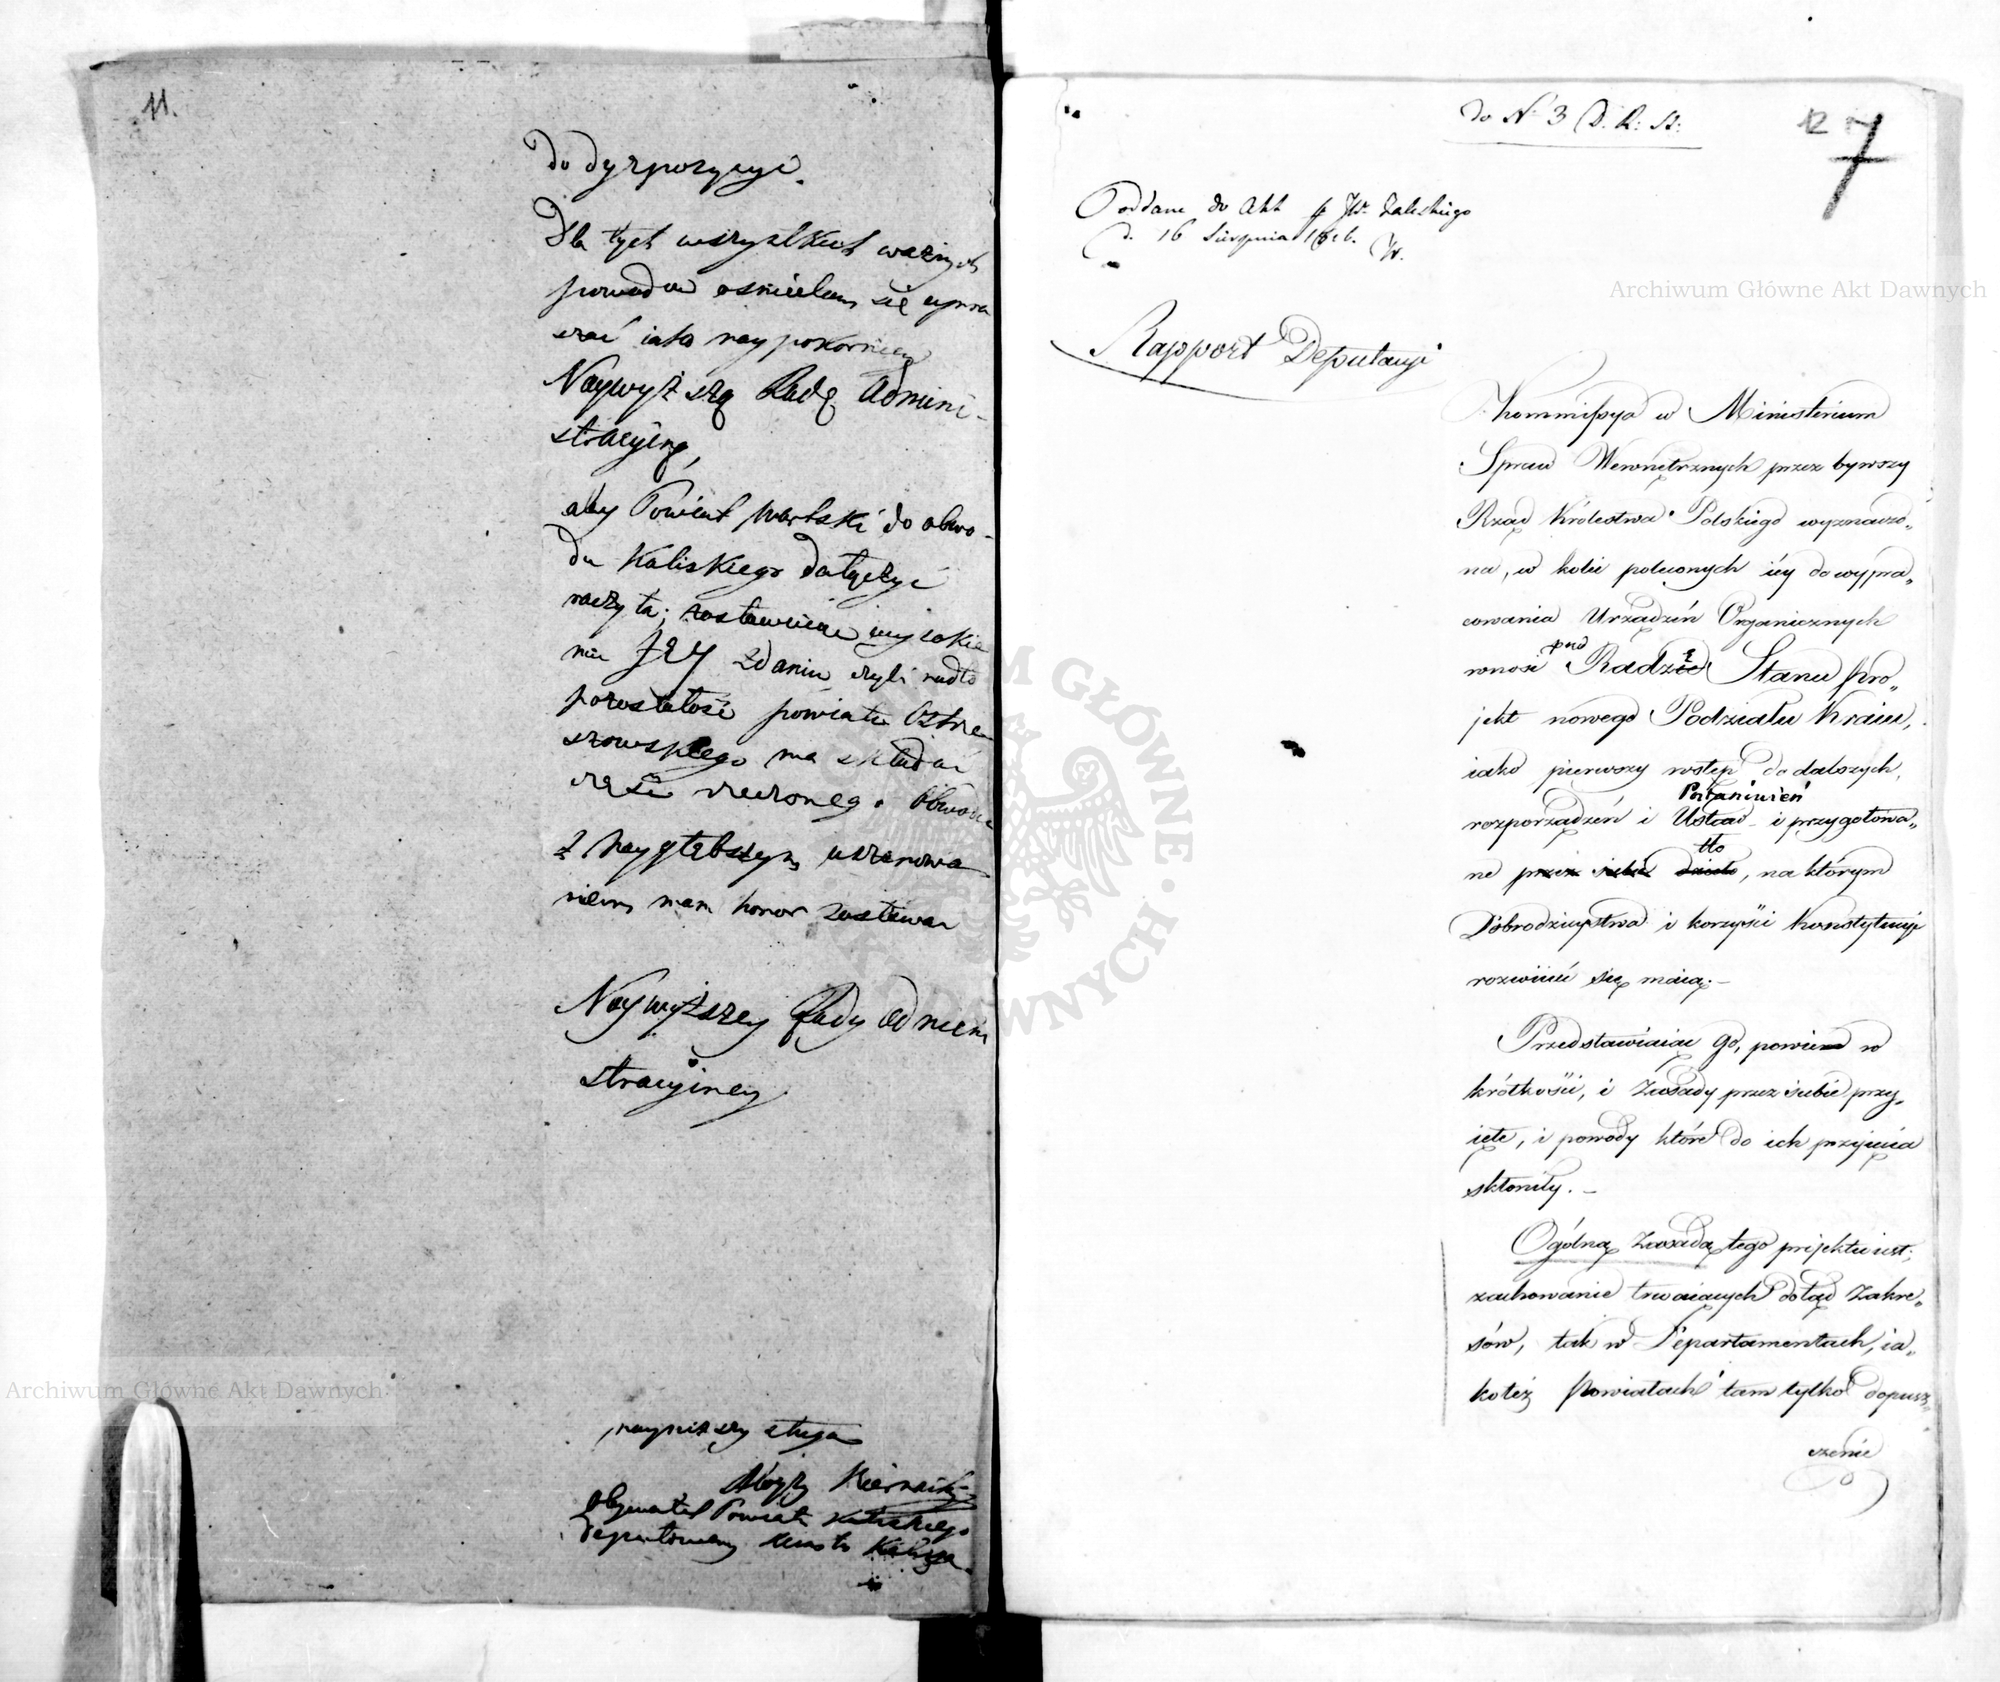 11.
do dyzpozycyi.
Dla tych wszystkich ważnych
powodów ośmielam się upra
szać iako naypokorniey
Naywyższą Radę Admini-
stracyiną,
aby Powiat Wartski do obwo-
du Kaliskiego dołączyć
raczyła; zostawuiąc wysokie
mu JEY zdaniu, czyli nadto
pozostałość powiatu Ostrze
szowskiego ma składać
część rzeczonego Obwodu
z naygłębszym uszanowa
niem mam honor zostawać
Naywyższey Rady Admini
stracyiney
nayniższy sługa
Biernacki
Obywatel Powiatu Kaliskiego
Deputowany Miasta Kalisza
do N 3 D. R: St:
12 7
Oddane do Akt p JW. Zaleskiego
d. 16 Sierpnia 1816.
Rapport Deputacyi
Kommissya w Ministerium
Spraw Wewnętrznych przez bywszy
Rząd Królestwa Polskiego wyznaczo„
na, w kolei poleconych iéy do wypra„
cowania Urządzeń Organicznych
wnosi pod Radzię Stanu Pro„
jekt nowego Podziału Kraiu,
iako pierwszy wstęp do dalszych
Postanowień
rozporządzeń i Ustaw i przygotowa„
tło
ne przez siebie dzieło, na którym
Dobrodzieystwa i korzyści Konstytucyi
rozwinąć się maią.–
Przedstawiaiąc go, powiem w
krótkości, i Zasady przez siebie przy„
ięte, i powody które do ich przyięcia
skłoniły.–
Ogólną Zasadą tego projektu iest:
zachowanie trwaiących dotąd Zakre„
sów, tak w Departamentach, ia„
koteż Powiatach tam tylko dopusz„
czenie
Archiwum Główne Akt Dawnych
Archiwum Główne Akt Dawnych